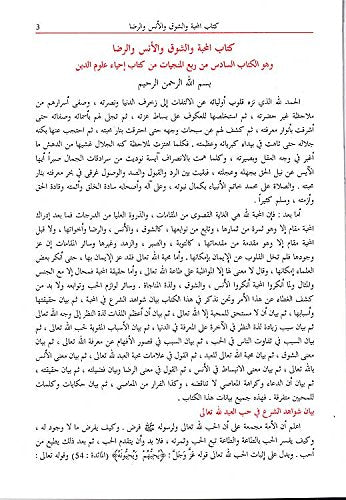 كتاب المحبة والشوق والأنس والرضا 3
كتاب المحبة والشوق والأنس والرضا
وهو الكتاب السادس من ربع المنجيات من كتاب إحياء علوم الدين
بسم الله الرحمن الرحيم
الحمد لله الذي نزه قلوب أوليائه عن الالتفات إلى زخرف الدنيا ونضرته ، وصفى أسرارهم من
ملاحظة غير حضرته ، ثم استخلصها للعكوف على بساط عزته ، ثم تجلى لهم بأسمائه وصفاته حتى
أشرقت بأنوار معرفته ، ثم كشف لهم عن سبحات وجهه حتى احترقت بنار محبته ، ثم احتجب عنها بكنه
جلاله حتى تاهت في بيداء كبريائه وعظمته . فكلما اهتزت لملاحظة كنه الجلال غشيها من الدهش ما
أغبر في وجه العقل وبصيرته ، وكلما همت بالانصراف آيسة نوديت من سرادقات الجمال صبراً أيها
الآيس عن نيل الحق بجهله وعجلته ، فبقيت بين الرد والقبول والصد والوصول غرقى في بحر معرفته بنار
محبته . والصلاة على محمد خاتم الأنبياء بكمال نبوته ، وعلى آله وأصحابه سادة الخلق وأئمته وقادة الحق
وأزمته ، وسلم كثيراً .
أما بعد : فإن المحبة لله هي الغاية القصوى من المقامات ، والذروة العليا من الدرجات فما بعد إدراك
المحبة مقام إلا وهو ثمرة من ثمارها ، وتابع من توابعها ، كالشوق ، والأنس ، والرضا وأخواتها ، ولا قبل
المحبة مقام إلا وهو مقدمة من مقدماتها ، كالتوبة ، والصبر ، والزهد وغيرها وسائر المقامات إن عز
وجودها فلم تخل القلوب عن الإيمان بإمكانها . وأما محبة الله تعالى فقد عز الإيمان بها ، حتى أنكر بعض
العلماء إمكانها ، وقال لا معنى لها إلا المواظبة على طاعة الله تعالى ، وأما حقيقة المحبة فمحال إلا مع الجنس
والمثال ولما أنكروا المحبة أنكروا الأنس ، والشوق ، ولذة المناجاة ، وسائر لوازم الحب وتوابعه ولا بد من
كشف الغطاء عن هذا الأمر ونحن نذكر في هذا الكتاب بيان شواهد الشرع في المحبة ، ثم بيان حقيقتها
وأسبابها ، ثم بيان أن لا مستحق للمحبة إلا الله تعالى ، ثم بيان أن أعظم اللذات لذة النظر إلى وجه الله تعالى
ثم بيان سبب زيادة لذة النظر في الآخرة على المعرفة في الدنيا ، ثم بيان الأسباب المقوية لحب الله تعالى ، ثم
بيان السبب في تفاوت الناس في الحب ، ثم بيان السبب في قصور الأفهام عن معرفة الله تعالى ، ثم بيان
معنى الشوق ، ثم بيان محبة الله تعالى للعبد ، ثم القول في علامات محبة العبد لله تعالى ، ثم بيان معنى الأنس
بالله تعالى ، ثم بيان معنى الانبساط في الأنس ، ثم القول في معنى الرضا وبيان فضيلته ، ثم بيان حقيقته ،
ثم بيان أن الدعاء وكراهة المعاصي لا تناقضه ، وكذا الفرار من المعاصي ، ثم بيان حكايات وكلمات
للمحبين متفرقة . فهذه جميع بيانات هذا الكتاب .
بيان شواهد الشرع في حب العبد لله تعالى
اعلم أن الأمة مجمعة على أن الحب لله تعالى ولرسوله ﷺ فرض . وكيف يفرض ما لا وجود له ،
وكيف يفسر الحب بالطاعة والطاعة تبع الحب وثمرته ، فلا بد وأن يتقدم الحب ، ثم بعد ذلك يطيع من
أحب . ويدل على إثبات الحب لله تعالى قوله عزَّ وجلَّ : ﴿يُحِبُّهُمْ وَيُحِبُّونَهُ﴾ (المائدة : 54) وقوله تعالى :